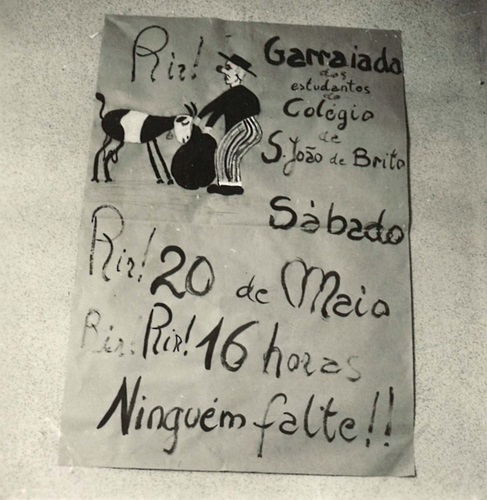 Rir!
Garraiada
dos
estudantes
do
Colégio
de
S. João de Brito
Sàbado
Rir! 20 de Maio
Rir! Rir! 16 horas
Ninguém falte!!